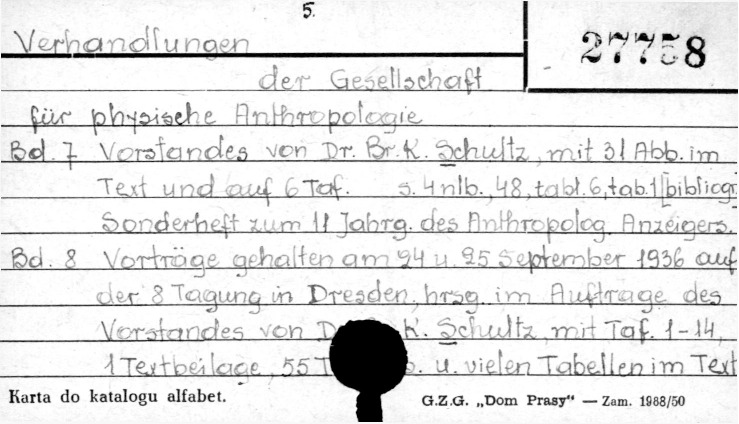 5.
Verhandlungen
27758
der Gesellschaft
für physische Anthropologie
Bd. 7 Vorstandes von Dr. Br. K. Schultz, mit 31 Abb. im
Text und auf 6 Taf. s. 4nlb., 48, tabl. 6, tab. 1 [bibliogr.
Sonderheft zum 11 Jahrg. des Anthropolog. Anzeigers.
Bd. 8 Vorträge gehalten am 24 u. 25 September 1936 auf
der 8 Tagung in Dresden, hrsg. im Auftrage des
Vorstandes von K. Schultz, mit Taf. 1-14,
1 Textbeilage, 55 u. vielen Tabellen im Text
Karta do katalogu alfabet.
G.Z.G. „Dom Prasy" — Zam. 1988/50